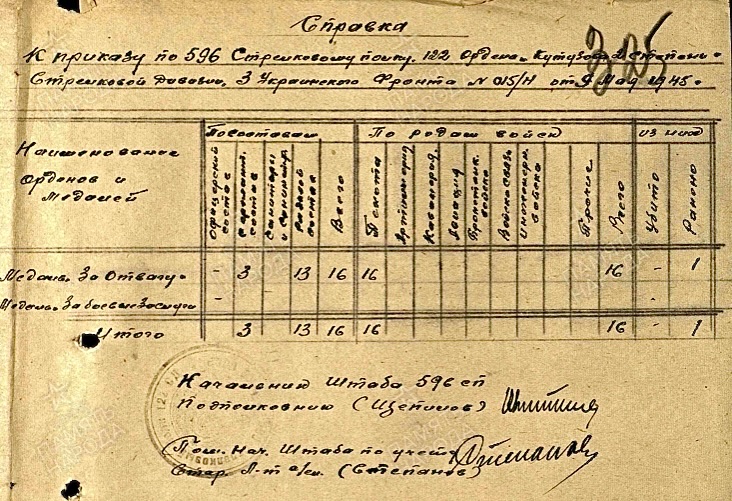 Справка
К приказу по 596 Стрелковому полку. 122 Ордена Кутузова 2 степени
Стрелковой дивизии. 3 Украинского Фронта N 015/Н от 9 Мая 1945.
325
Наименование орденов и медалей
По составам
По родам войск
из них
Офицерский состав
Сержант. состав
Санитары и
Рядовой состав
Всего
Пехота
Артиллерия
Кавалерия
Авиация
войска
Войска связи
инженерн. войска
Прочие
Всего
Убито
Ранено
Медаль. За Отвагу - - 3 13 16 16 16 - 1
Медаль. За боевые заслуги - -
Итого 3 13 16 16 16 - 1
Начальник Штаба 596 сп
Подполковник (Щепинов)
Пом. Нач. Штаба по учету
Стар. Л-т (Степанов)
ПАМЯТЬ НАРОДА